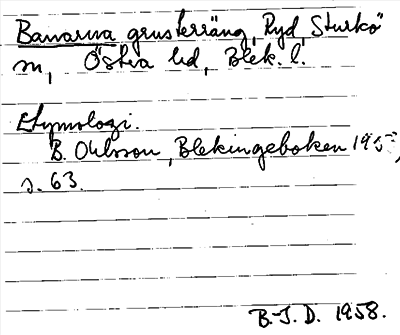 Banarna grusterräng, Ryd, Sturkö
sn, Östra hd, Blek. l.
Etymologi.
B. Ohlsson, Blekingeboken
s. 63.
B-J. D. 1958.